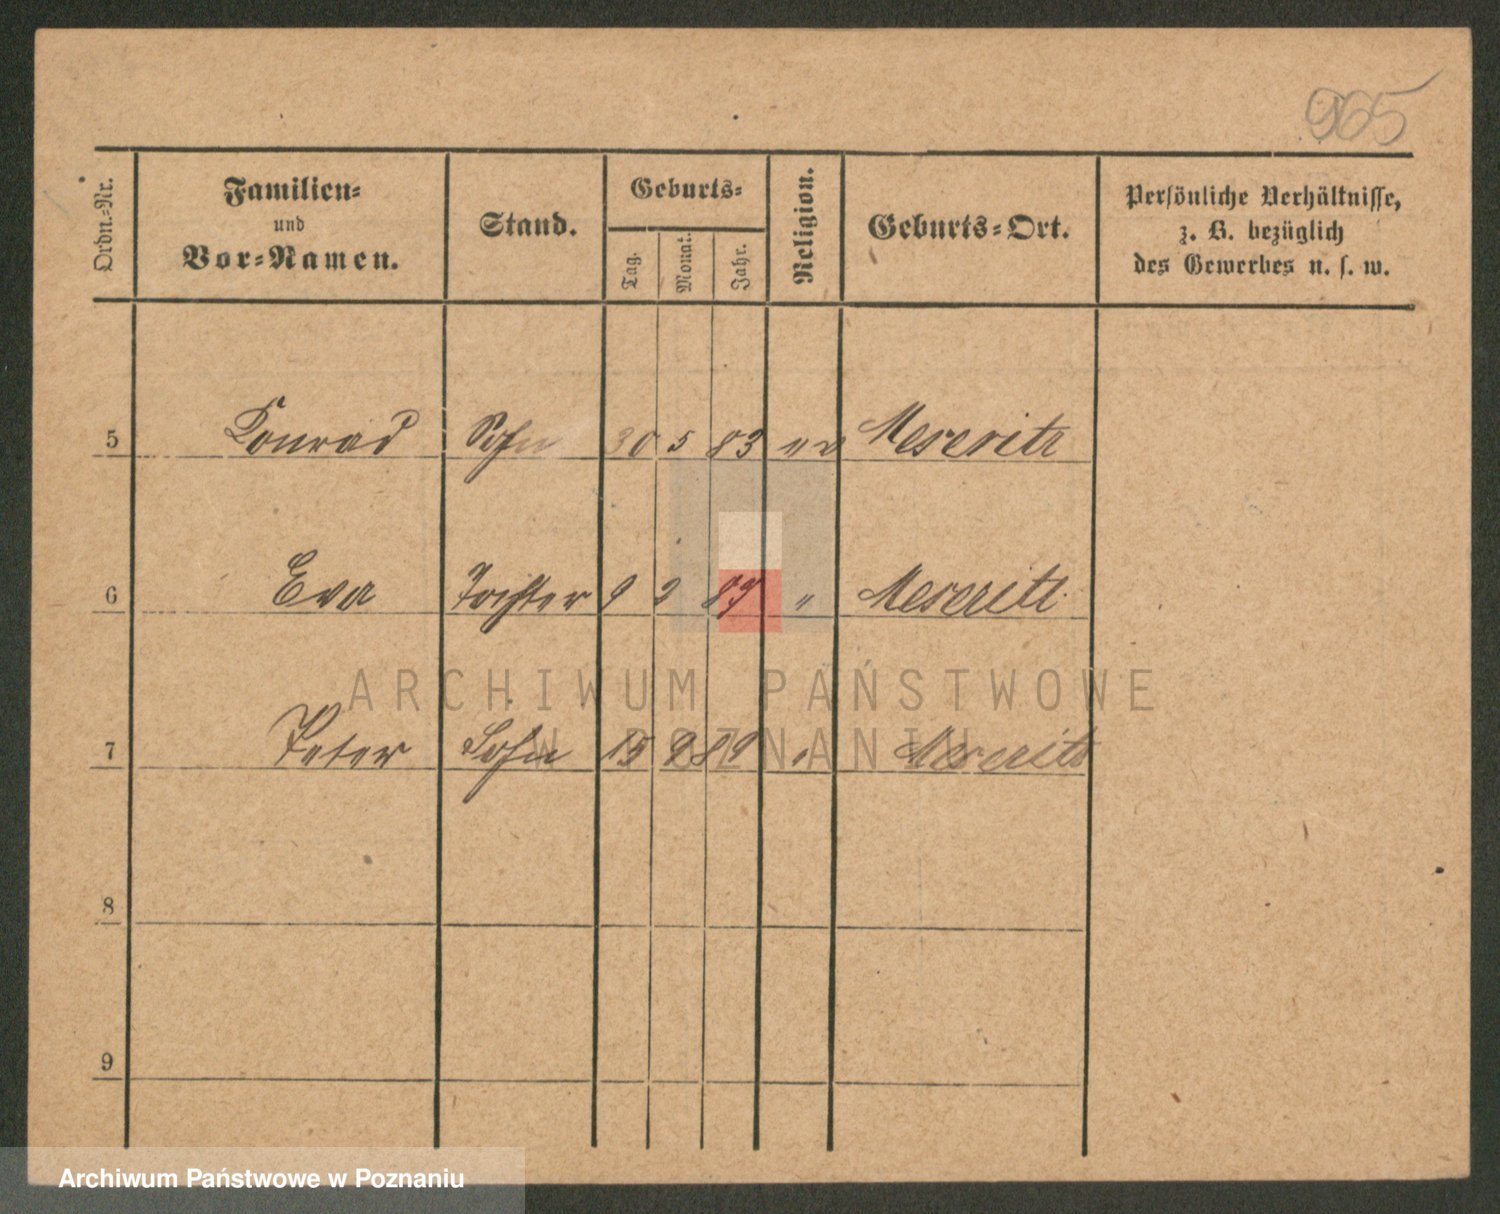 965
Ordn.-Nr.
Familien-
und
Vor-Namen.
Stand.
Geburts-
Tag.
Monat.
Jahr.
Religion.
Geburts-Ort.
Persönliche Verhältnisse,
z. B. bezüglich
des Gewerbes u. s. w.
5 Konrad Sohn 30 5 83 Meseritz
6 Eva Tochter 9 2 " Meseritz
ARCHIWUM PAŃSTWOWE
W POZNANIU
7 Peter Sohn 15 9 89 " Meseritz
8
9
Archiwum Państwowe w Poznaniu